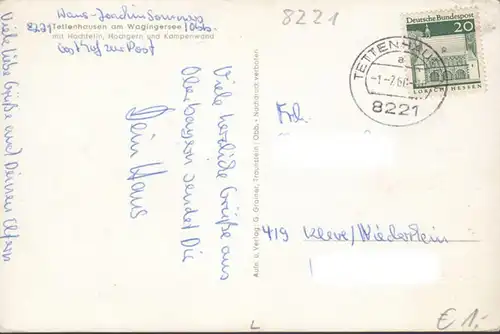 Hans-Joachim
8221 Tettenhausen am Wagingersee / Obb.
mit Hochfelln, Hochgern und Kampenwand
Gasthof zur Post
8221
Deutsche Bundespost
20
LORSCH/HESSEN
TETTENHAUSEN
a
-1.-7.66-
8221
Viele herzliche Grüße aus
Oberbayern sendet Dir
Dein Hans
Viele liebe Grüße auch Deinen Eltern
Aufn. u. Verlag: G. Grainer, Traunstein / Obb. - Nachdruck verboten
Frl.
419 Kleve/Niederrhein
L
€ 1,-